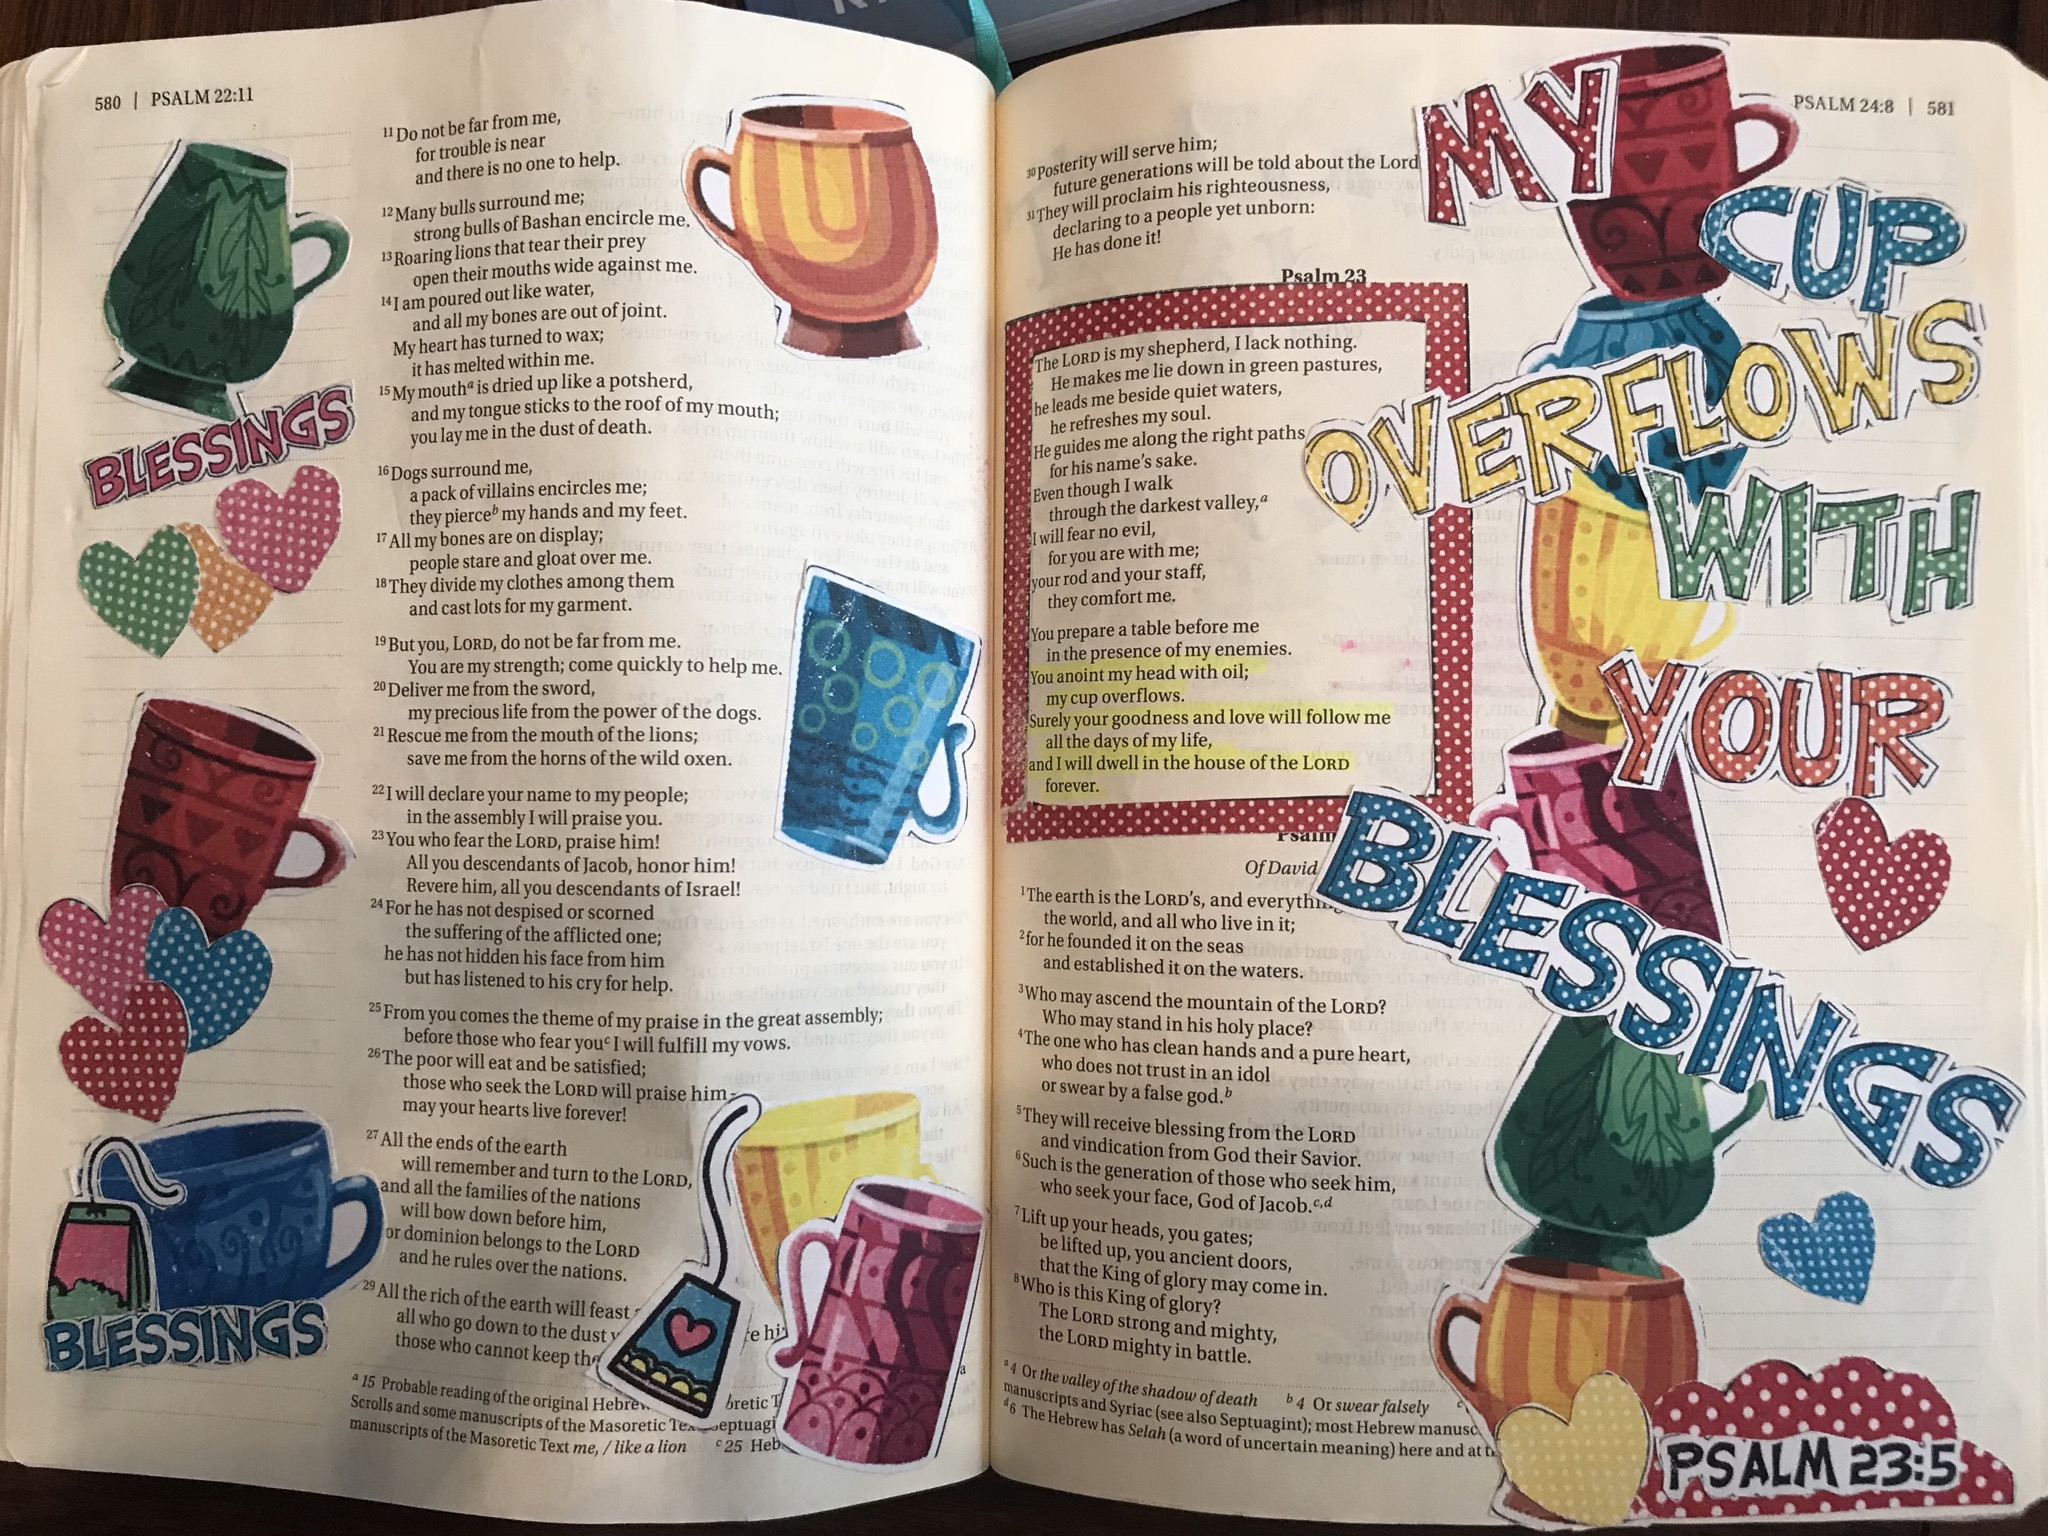 580 | PSALM 22:11
11 Do not be far from me,
for trouble is near
and there is no one to help.
12 Many bulls surround me;
strong bulls of Bashan encircle me.
13 Roaring lions that tear their prey
open their mouths wide against me.
14 I am poured out like water,
and all my bones are out of joint.
My heart has turned to wax;
it has melted within me.
15 My mouth a is dried up like a potsherd,
and my tongue sticks to the roof of my mouth;
you lay me in the dust of death.
16 Dogs surround me,
a pack of villains encircles me;
they pierce b my hands and my feet.
17 All my bones are on display;
people stare and gloat over me.
18 They divide my clothes among them
and cast lots for my garment.
19 But you, LORD, do not be far from me.
You are my strength; come quickly to help me.
20 Deliver me from the sword,
my precious life from the power of the dogs.
21 Rescue me from the mouth of the lions;
save me from the horns of the wild oxen.
22 I will declare your name to my people;
in the assembly I will praise you.
23 You who fear the LORD, praise him!
All you descendants of Jacob, honor him!
Revere him, all you descendants of Israel!
24 For he has not despised or scorned
the suffering of the afflicted one;
he has not hidden his face from him
but has listened to his cry for help.
25 From you comes the theme of my praise in the great assembly;
before those who fear you c I will fulfill my vows.
26 The poor will eat and be satisfied;
those who seek the LORD will praise him
may your hearts live forever!
27 All the ends of the earth
will remember and turn to the LORD,
and all the families of the nations
will bow down before him,
or dominion belongs to the LORD
and he rules over the nations.
29 All the rich of the earth will feast
all who go down to the dust
those who cannot keep
a 15 Probable reading of the original
Scrolls and some manuscripts of the Masoretic
manuscripts of the Masoretic Text me, / like a lion c 25
BLESSINGS
BLESSINGS
PSALM 24:8 | 581
30 Posterity will serve him;
future generations will be told about the Lord
31 They will proclaim his righteousness,
declaring to a people yet unborn:
He has done it!
Psalm 23
The LORD is my shepherd, I lack nothing.
He makes me lie down in green pastures,
he leads me beside quiet waters,
he refreshes my soul.
He guides me along the right paths
for his name's sake.
Even though I walk
through the darkest valley, a
I will fear no evil,
for you are with me;
your rod and your staff,
they comfort me.
You prepare a table before me
in the presence of my enemies.
You anoint my head with oil;
my cup overflows.
Surely your goodness and love will follow me
all the days of my life,
and I will dwell in the house of the LORD
forever.
Psalm
Of David
1 The earth is the LORD's, and
the world, and all who live in it;
2 for he founded it on the seas
and established it on the waters.
3 Who may ascend the mountain of the LORD?
Who may stand in his holy place?
4 The one who has clean hands and a pure heart,
who does not trust in an idol
or swear by a false god. b
5 They will receive blessing from the LORD
and vindication from God their Savior.
6 Such is the generation of those who seek him,
who seek your face, God of Jacob. c,d
7 Lift up your heads, you gates;
be lifted up, you ancient doors,
that the King of glory may come in.
8 Who is this King of glory?
The LORD strong and mighty,
the LORD mighty in battle.
a 4 Or the valley of the shadow of death b 4 Or swear falsely c
manuscripts and Syriac (see also Septuagint); most Hebrew
d 6 The Hebrew has Selah (a word of uncertain meaning) here and at
MY
CUP
OVERFLOWS
WITH
YOUR
BLESSINGS
PSALM 23:5